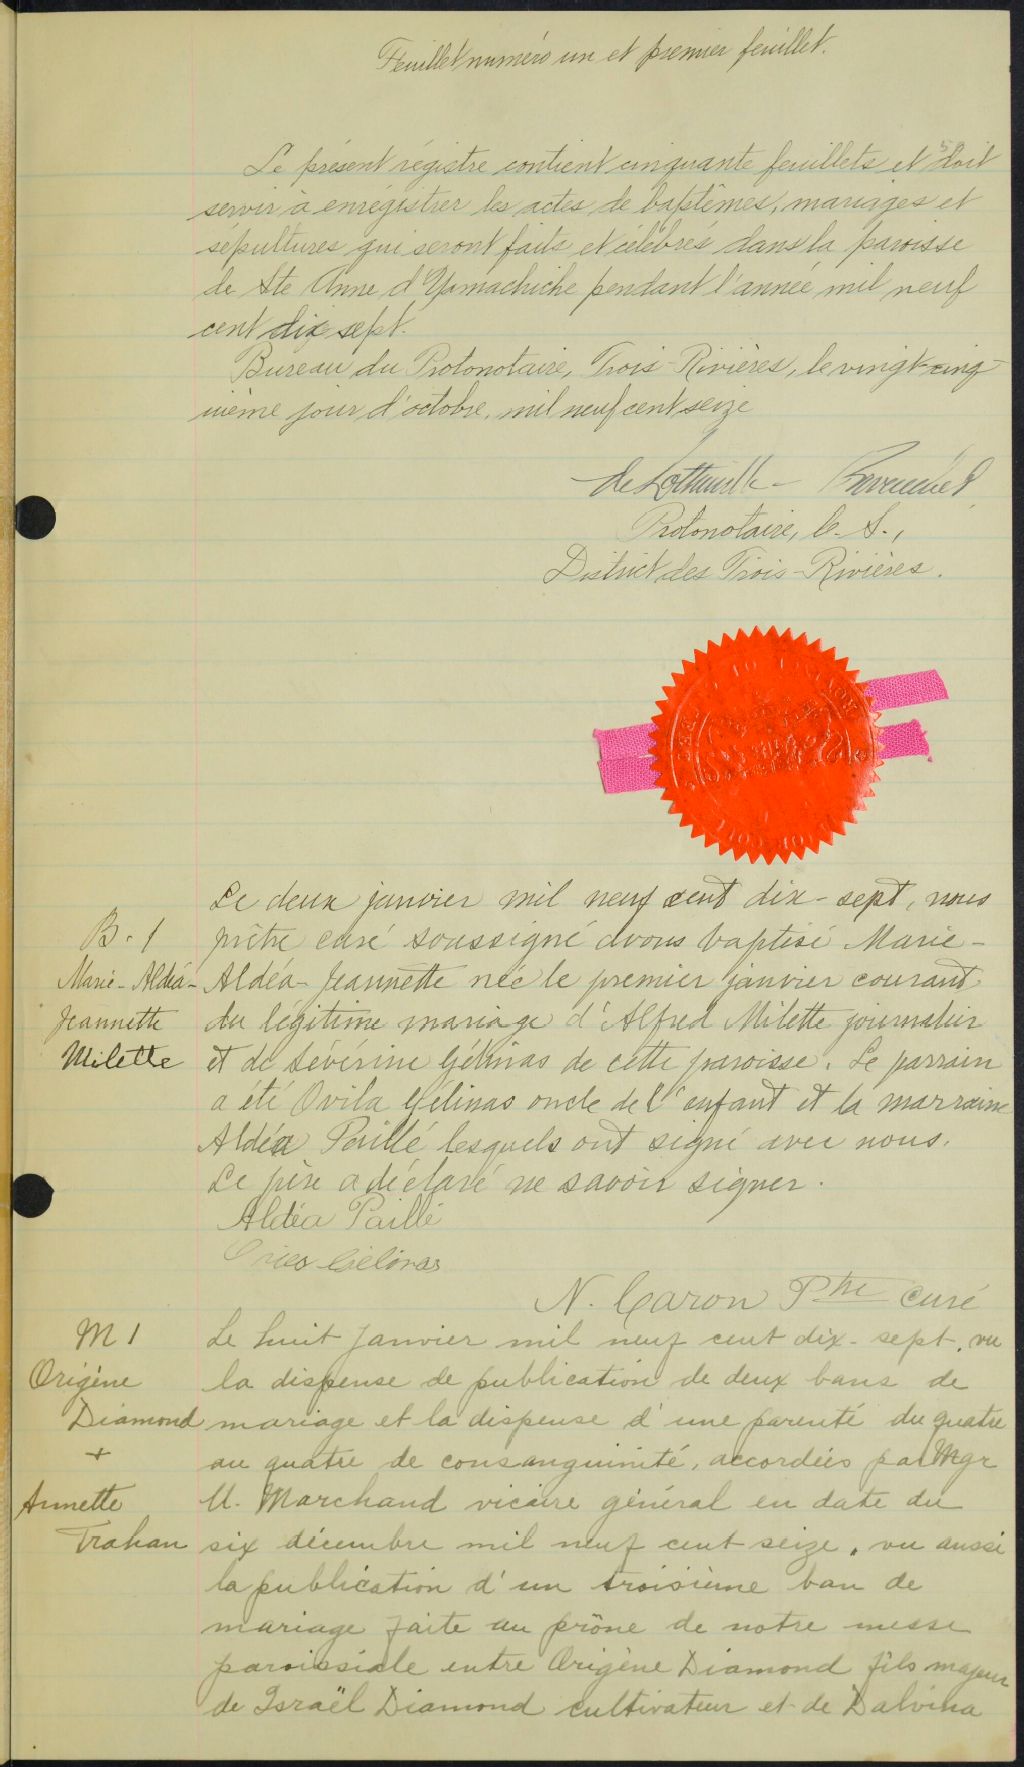 Feuillet numéro un et premier feuillet.
Le présent régistre contient cinquante feuillets et doit
servir à enrégistrer les actes de baptêmes, mariages et
sépultures qui seront faits et célébrés dans la paroisse
de Ste Anne d'Yamachiche pendant l'année mil neuf
cent dix sept.
Bureau du Protonotaire, Trois-Rivières, le vingt-cinq-
uième jour d'octobre, mil neuf cent seize
Protonotaire, C. S.,
District des Trois-Rivières.
B. 1
Marie-Aldéa-
Jeannette
Milette
Le deux janvier mil neuf cent dix-sept, nous
prêtre curé soussigné avons baptisé Marie-
Aldéa-Jeannette née le premier janvier courant
du légitime mariage d'Alfred Milette journalier
et de Sévérine Gélinas de cette paroisse. Le parrain
a été Ovila Gélinas oncle de l'enfant et la marraine
Aldéa Paillé lesquels ont signé avec nous.
Le père a déclaré ne savoir signer.
Aldéa Paillé
Gélinas
N. Caron Ptre curé
M 1
Origène
Diamond
+
Annette
Trahan
Le huit Janvier mil neuf cent dix-sept, vu
la dispense de publication de deux bans de
mariage et la dispense d'une parenté du quatre
au quatre de consanguinité, accordées par Mgr
U. Marchand vicaire général en date du
six décembre mil neuf cent seize, vu aussi
la publication d'un troisième ban de
mariage faite au prône de notre messe
paroissiale entre Origène Diamond fils majeur
de Israël Diamond cultivateur et de Dalvina